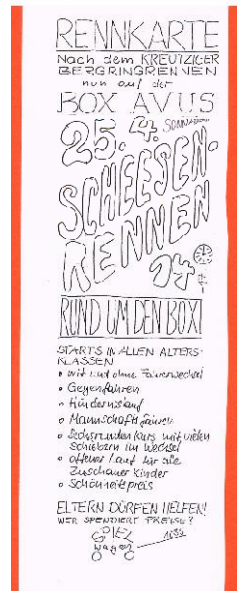 RENNKARTE
Nach dem KREUTZIGER
BERGRINGRENNEN
nun auf der
BOX AVUS
25.4. SONNABEND
SCHEESEN-
RENNEN
14
RUND UM DEN BOXI
STARTS IN ALLEN ALTERS-
KLASSEN
• mit und ohne Fahrerwechsel
• Gegenfahren
• Hindernislauf
• Mannschaftsfahren
• Sechsrundenkurs mit vielen
Schiebern im Wechsel
• offener Lauf für alle
Zuschauer Kinder
• Schönheitspreis
ELTERN DÜRFEN HELFEN!
WER SPENDIERT PREISE?
SPIEL
wagen
1035